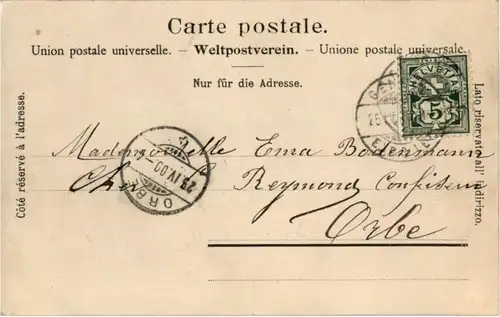 Carte postale.
Union postale universelle. – Weltpostverein. – Unione postale universale.
Nur für die Adresse.
Côté réservé à l'adresse.
Lato riservato all' indirizzo.
HELVETIA
5
25
ORBE
29.IV.00
Mademoiselle Ema Bodenmann
Chez Reymond Confiseur
Orbe